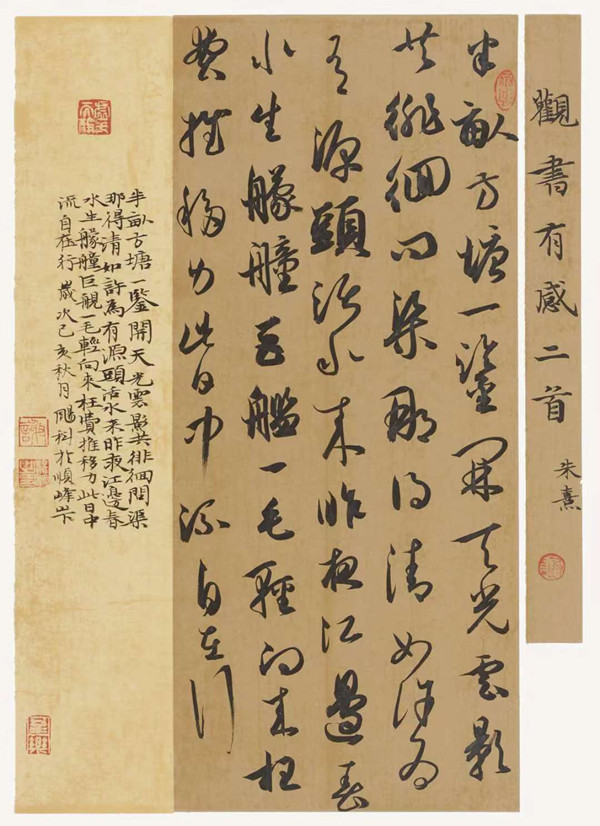 觀書有感二首
朱熹
半畝方塘一鑒開天光雲影
共徘徊問渠那得清如許為
有源頭活水來昨夜江邊春
水生艨艟巨艦一毛輕向來枉
費推移力此日中流自在行
半畝方塘一鑒開天光雲影共徘徊問渠
那得清如許為有源頭活水來昨夜江邊春
水生艨艟巨艦一毛輕向來枉費推移力此日中
流自在行 歲次己亥秋月 於順峰山下